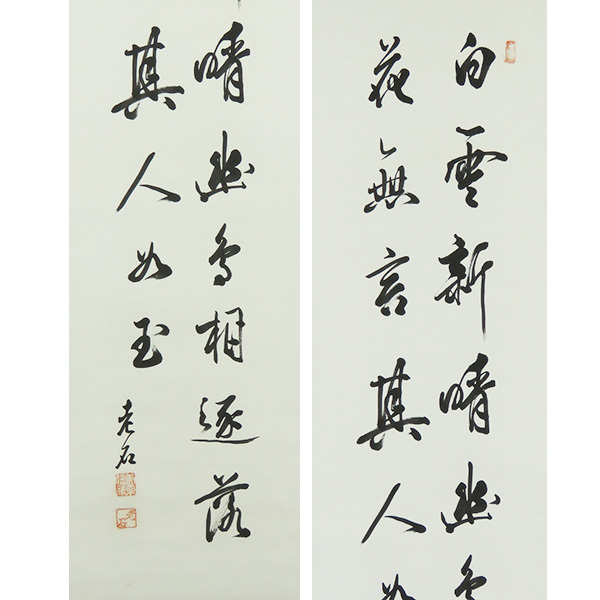 白雲新晴幽鳥
花無言其人如
晴幽鳥相逐落
其人如玉
老石